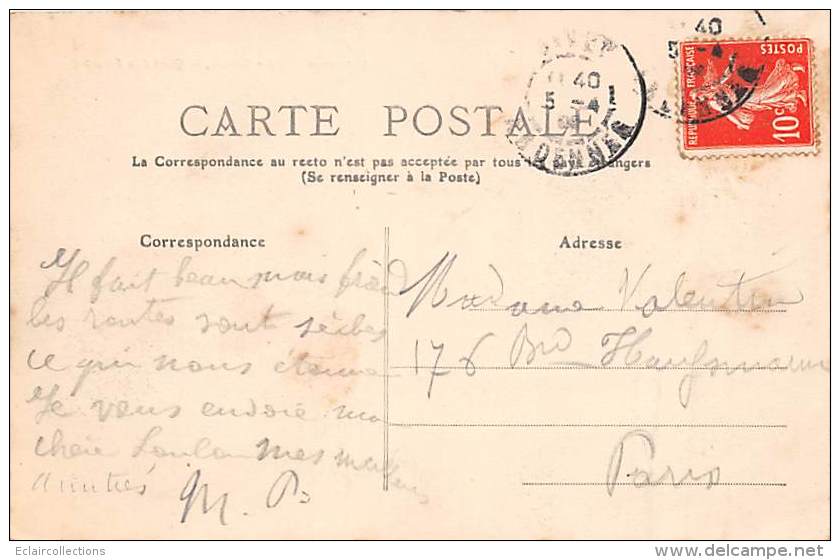 CARTE POSTALE
La Correspondance au recto n'est pas acceptée par tous les pays étrangers
(Se renseigner à la Poste)
40
5 -4
ARDENNES
40
POSTES
REPUBLIQUE FRANÇAISE
10c
Correspondance
Il fait beau mais froid
les routes sont sèches
ce qui nous étonne
Je vous envoie ma
chère Loulou mes meilleurs
amitiés M. P.
Adresse
Madame Valentin
176 Brd Haussmann
Paris
Eclaircollections
www.delcampe.net